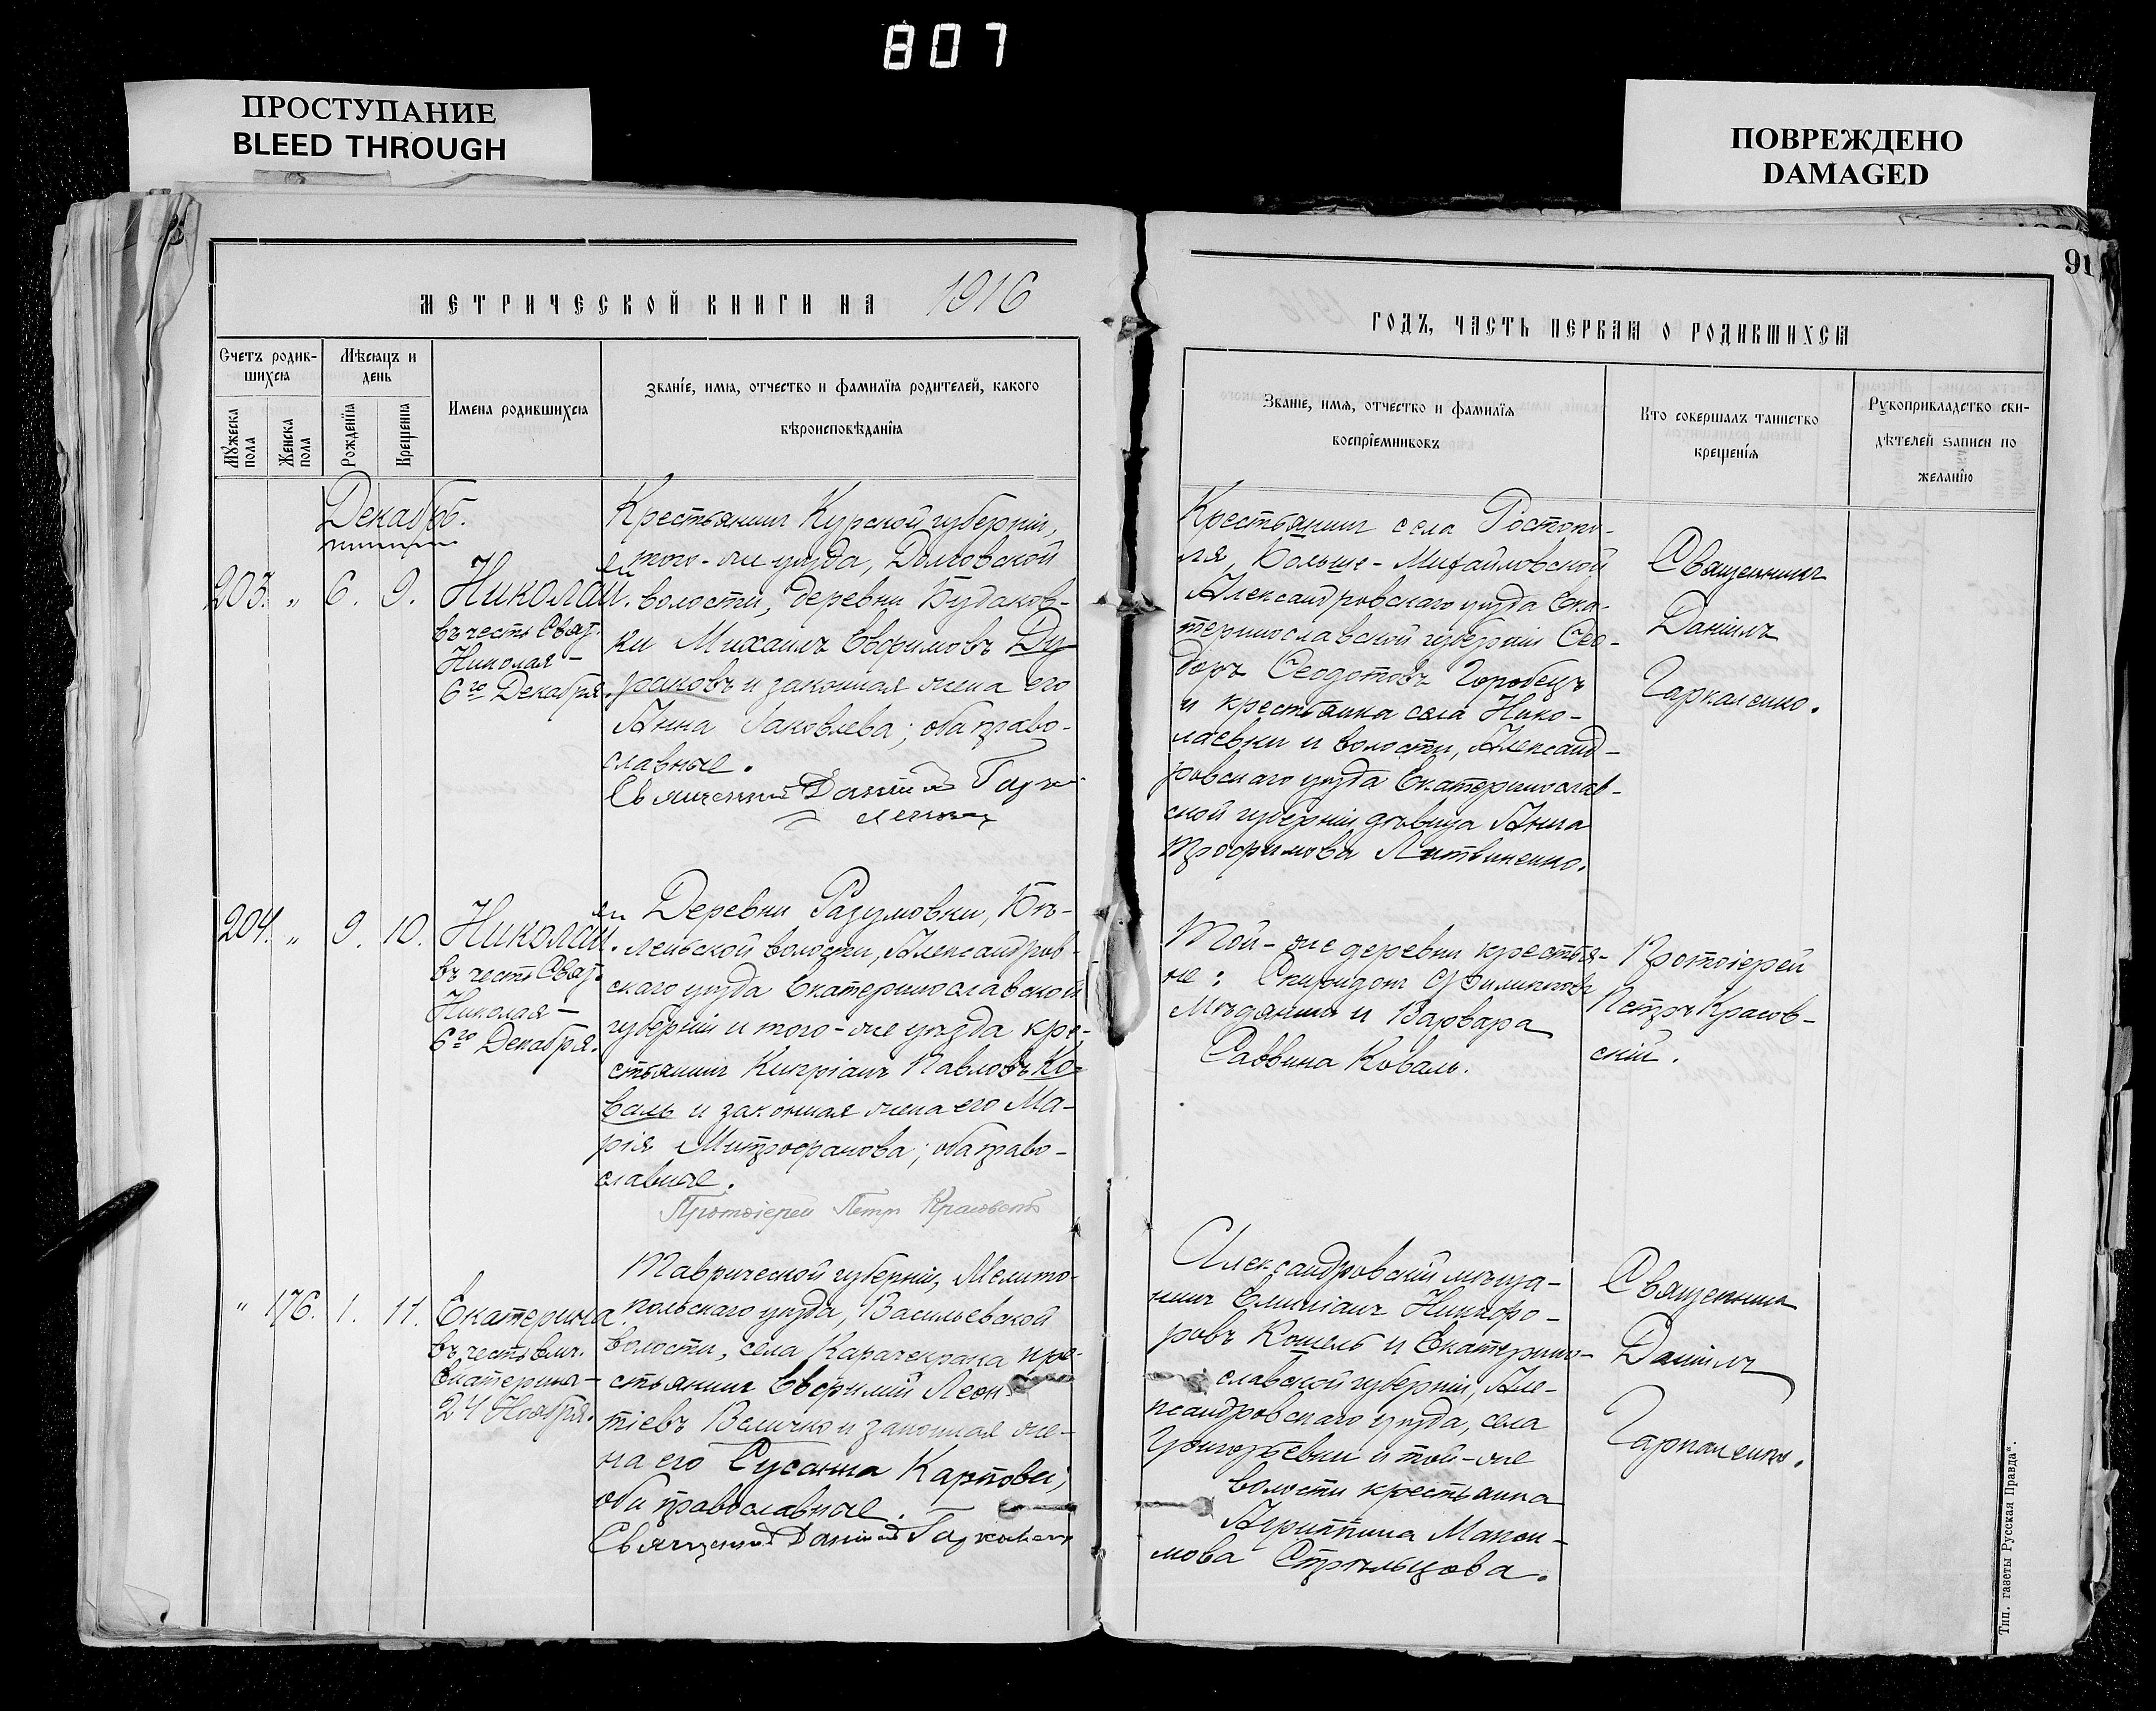 807
ПРОСТУПАНИЕ
BLEED THROUGH
ПОВРЕЖДЕНО
DAMAGED
91
МЕТРИЧЕСКОЙ КНИГИ НА 1916
ГОДЪ, ЧАСТЬ ПЕРВАЯ О РОДИВШИХСЯ
Счетъ родив-
шихся
Мѣсяцъ и
день
Мужеска пола
Женска пола
Рожденія
Крещенія
Имена родившихся
Званіе, имя, отчество и фамилія родителей, какого
вѣроисповѣданія
Званіе, имя, отчество и фамилія
воспріемниковъ
Кто совершалъ таинство
крещенія
Рукоприкладство сви-
дѣтелей записи по
желанію
Декабрь.
203. „ 6. 9. Николай.
въ честь Свят.
Николая –
6го Декабря.
Крестьянинъ Курской губерніи,
того-же уѣзда, Долговской
волости, деревни Будаков-
ки Михаилъ Евфимовъ Ду-
раковъ и законная жена его
Анна Іаковлева; оба право-
славные.
Священникъ Даніилъ Гарка-
ленко
Крестьянинъ села Ростопо-
ля, Больше-Михайловской,
Александровскаго уѣзда Ека-
теринославской губерніи Ѳео-
доръ Ѳеодотовъ Горобецъ
и крестьянка села Нико-
лаевки и волости, Александ-
ровскаго уѣзда Екатеринослав-
ской губерніи дѣвица Анна
Трофимова Литвиненко.
Священникъ
Даніилъ
Гаркаленко.
204. „ 9. 10. Николай.
въ честь Свят.
Николая –
6го Декабря.
Деревни Разумовки, Бѣ-
леньской волости, Александров-
скаго уѣзда Екатеринославской
губерніи и того-же уѣзда кре-
стьянинъ Кипріанъ Павловъ Ко-
валь и законная жена его Ма-
рія Митрофанова; оба право-
славные.
Протоіерей Петръ Красовскій
Той-же деревни крестья-
не: Спиридонъ Филипповъ
Мѣдяникъ и Варвара
Саввина Коваль.
Протоіерей
Петръ Красов-
скій.
„ 176. 1. 11. Екатерина.
въ честь влмч.
Екатерины –
24 Ноября.
Таврической губерніи, Мелито-
польскаго уѣзда, Васильевской
волости, села Карачекрака кре-
стьянинъ Евфимій Леон-
тіевъ Величко и законная же-
на его Сусанна Карпова;
оба православные.
Священникъ Даніилъ Гаркаленко
Александровскій мѣща-
нинъ Емиліанъ Никифо-
ровъ Кошель и Екатерино-
славской губерніи, Але-
ксандровскаго уѣзда, села
Григорьевки и той-же
волости крестьянка
Агриппина Макси-
мова Стрѣльцова.
Священникъ
Даніилъ
Гаркаленко.
Тип. газеты Русская Правда".